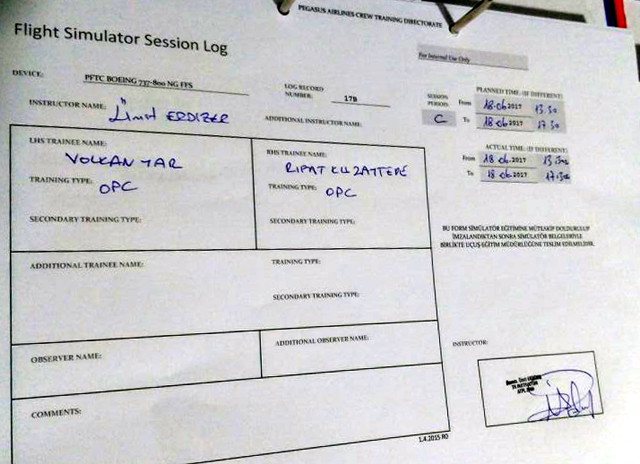 PEGASUS AIRLINES CREW TRAINING DIRECTORATE
Flight Simulator Session Log
For Internal Use Only
DEVICE: PFTC BOEING 737-800 NG FFS
LOG RECORD NUMBER: 178
SESSION PERIOD: C
PLANNED TIME: (IF DIFFERENT)
From 18.06.2017 13.30
To 18.06.2017 17.30
INSTRUCTOR NAME: ERDIZER
ADDITIONAL INSTRUCTOR NAME:
ACTUAL TIME: (IF DIFFERENT)
From 18.06.2017 13.30
To 18.06.2017 17.30
LHS TRAINEE NAME: VOLKAN YAR
TRAINING TYPE: OPC
SECONDARY TRAINING TYPE:
RHS TRAINEE NAME:
TRAINING TYPE: OPC
SECONDARY TRAINING TYPE:
BU FORM SİMULATÖR EĞİTİMİNE MÜTEAKİP DOLDURULUP
İMZALANDIKTAN SONRA SİMULATÖR BELGELERİYLE
BİRLİKTE UÇUŞ EĞİTİM MÜDÜRLÜĞÜNE TESLİM EDİLMELİDİR.
ADDITIONAL TRAINEE NAME:
TRAINING TYPE:
SECONDARY TRAINING TYPE:
OBSERVER NAME:
ADDITIONAL OBSERVER NAME:
INSTRUCTOR:
COMMENTS:
1.4.2015 R0